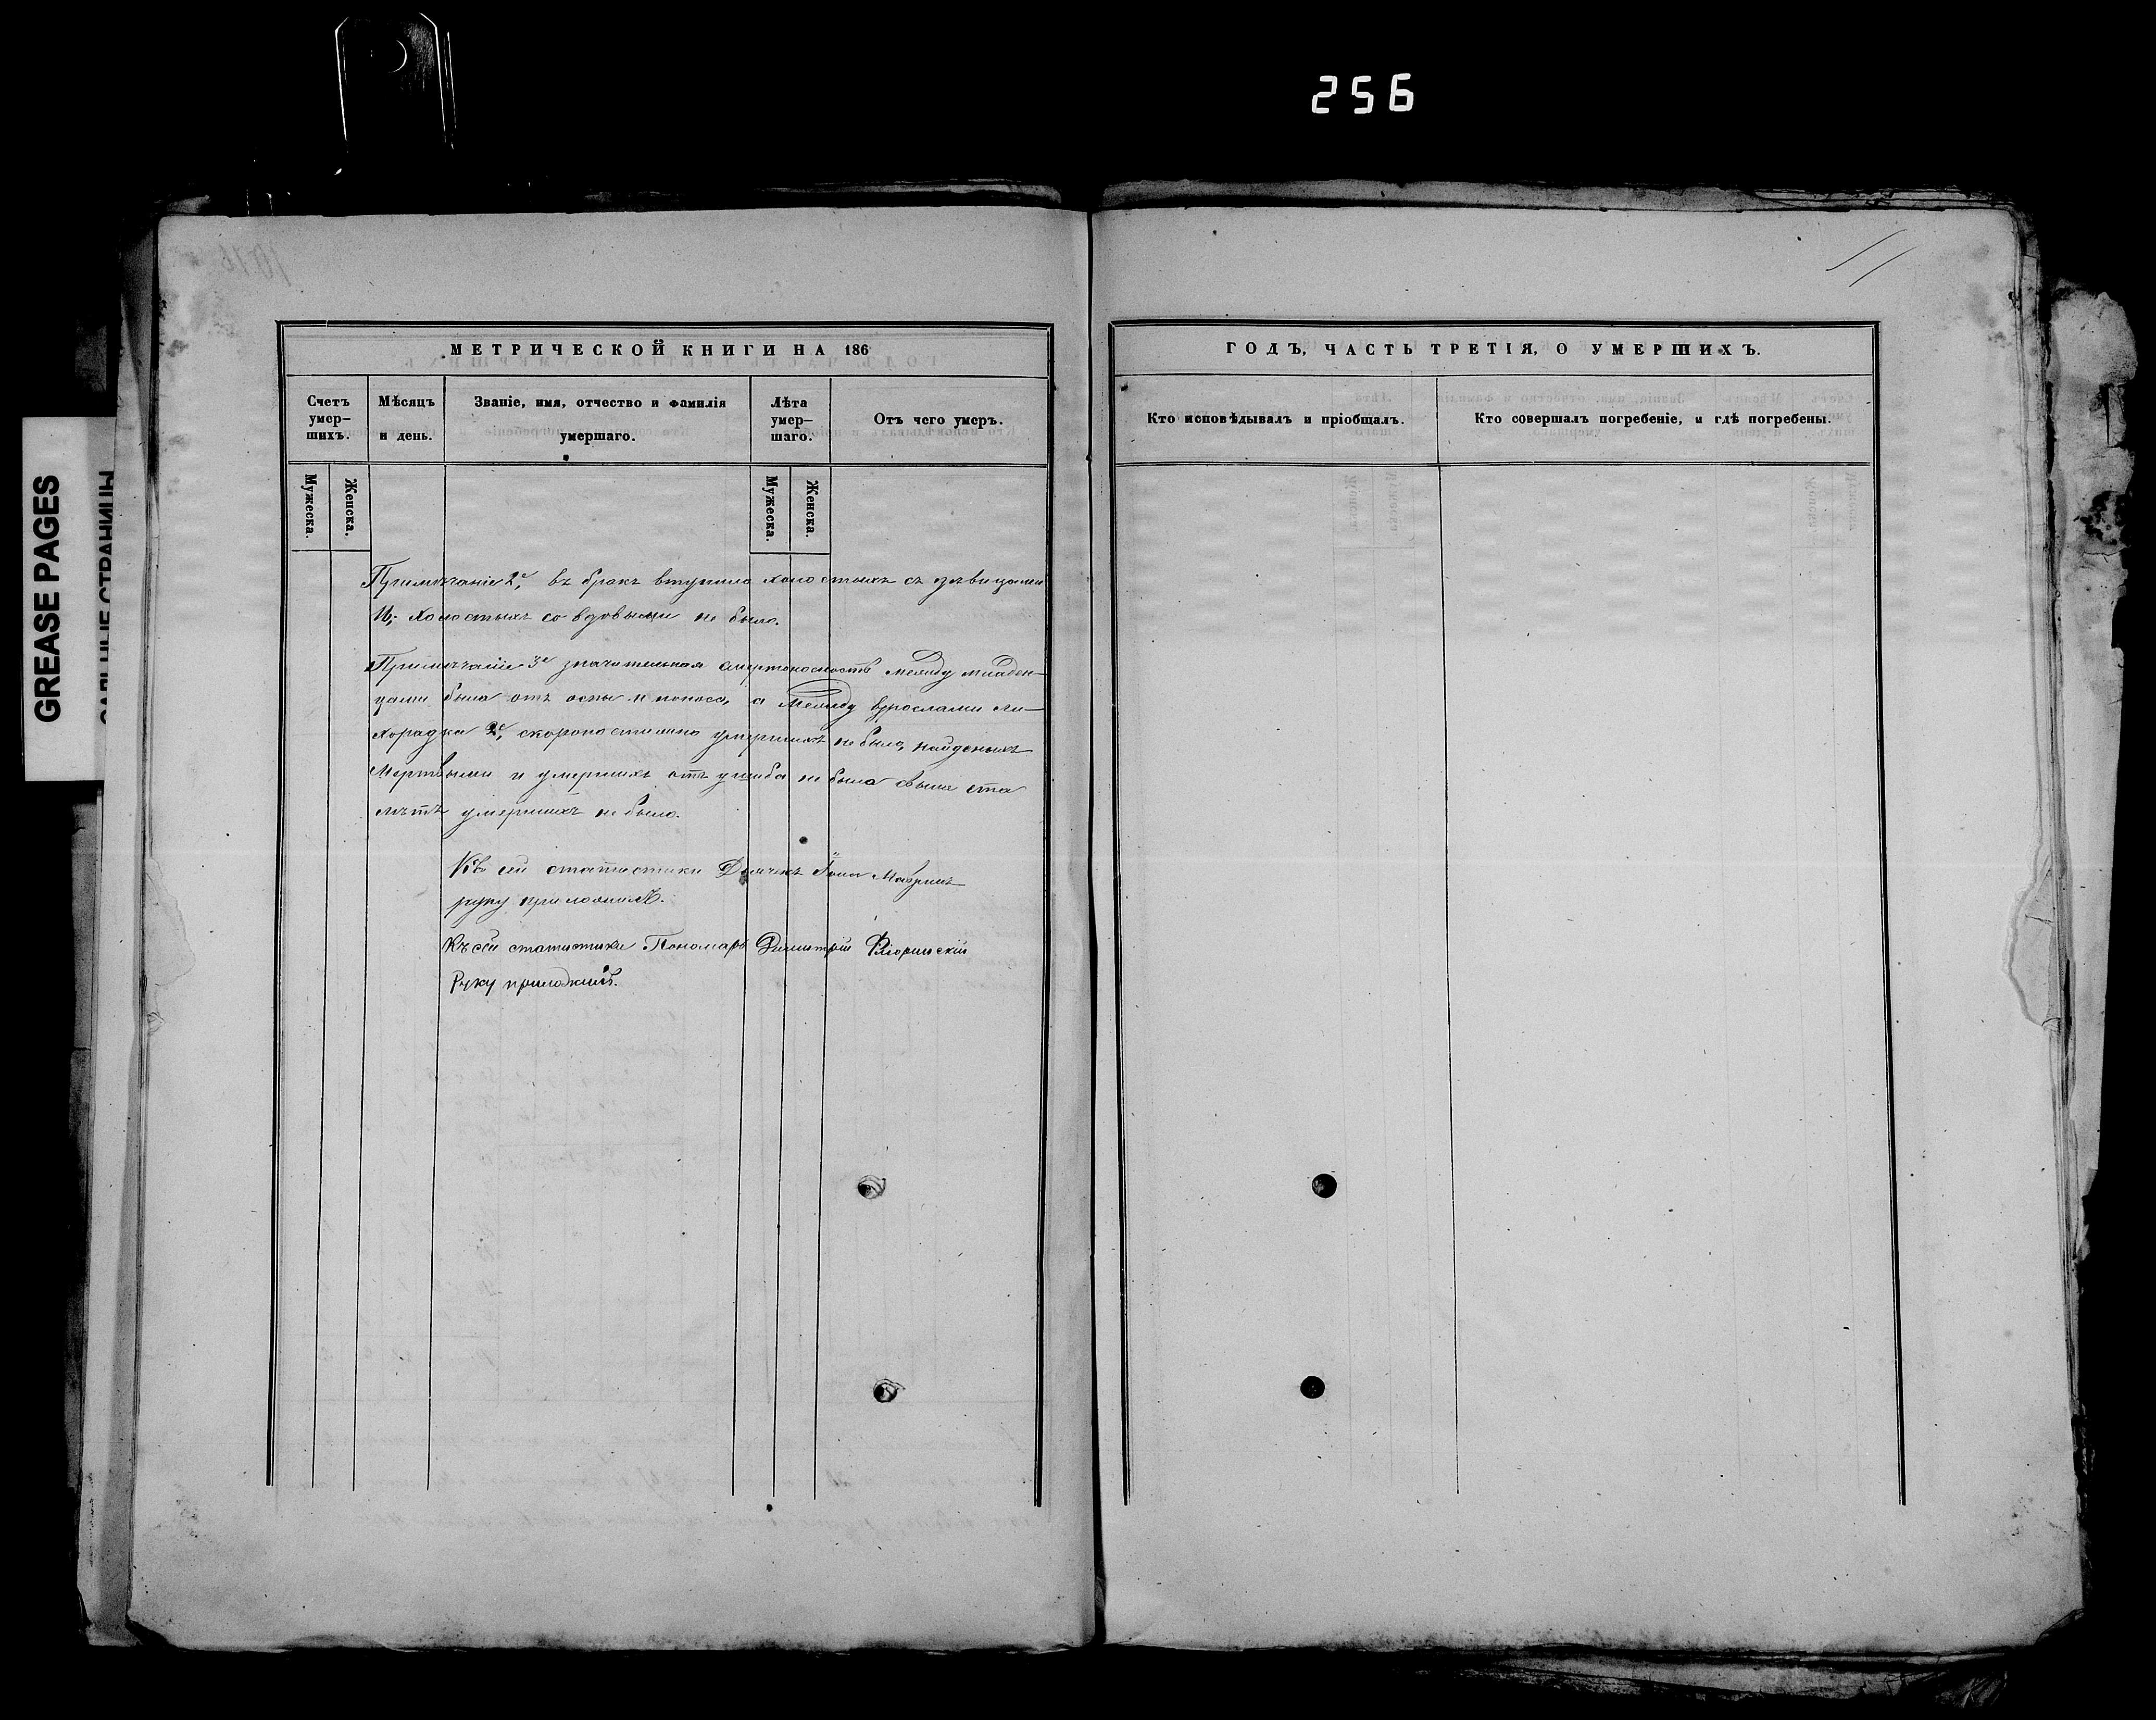 256
GREASE PAGES
МЕТРИЧЕСКОЙ КНИГИ НА 186
Счетъ умер-
шихъ.
Мѣсяцъ
и день.
Званіе, имя, отчество и фамилія
умершаго.
Лѣта
умер-
шаго.
Отъ чего умеръ.
Мужеска.
Женска.
Мужеска.
Женска.
Примѣчаніе 2е, въ бракъ вступило холостыхъ съ дѣвицами
холостыхъ со вдовыми не было.
Примѣчаніе 3е значительная смертоносность между младен-
цами была отъ оспы и поноса, а между врослами ли-
хорадка 2е, скоропостижно умершихъ не было, найденыхъ
Мертвыми и умершихъ отъ ушиба не было свыше ста
лѣтъ умершихъ не было.
Къ сей статистики Дьячекъ
руку приложилъ.
Къ сей статистики Пономарь Димитрій
Руку приложилъ.
ГОДЪ, ЧАСТЬ ТРЕТІЯ, О УМЕРШИХЪ.
Кто исповѣдывалъ и пріобщалъ.
Кто совершалъ погребеніе, и гдѣ погребены.